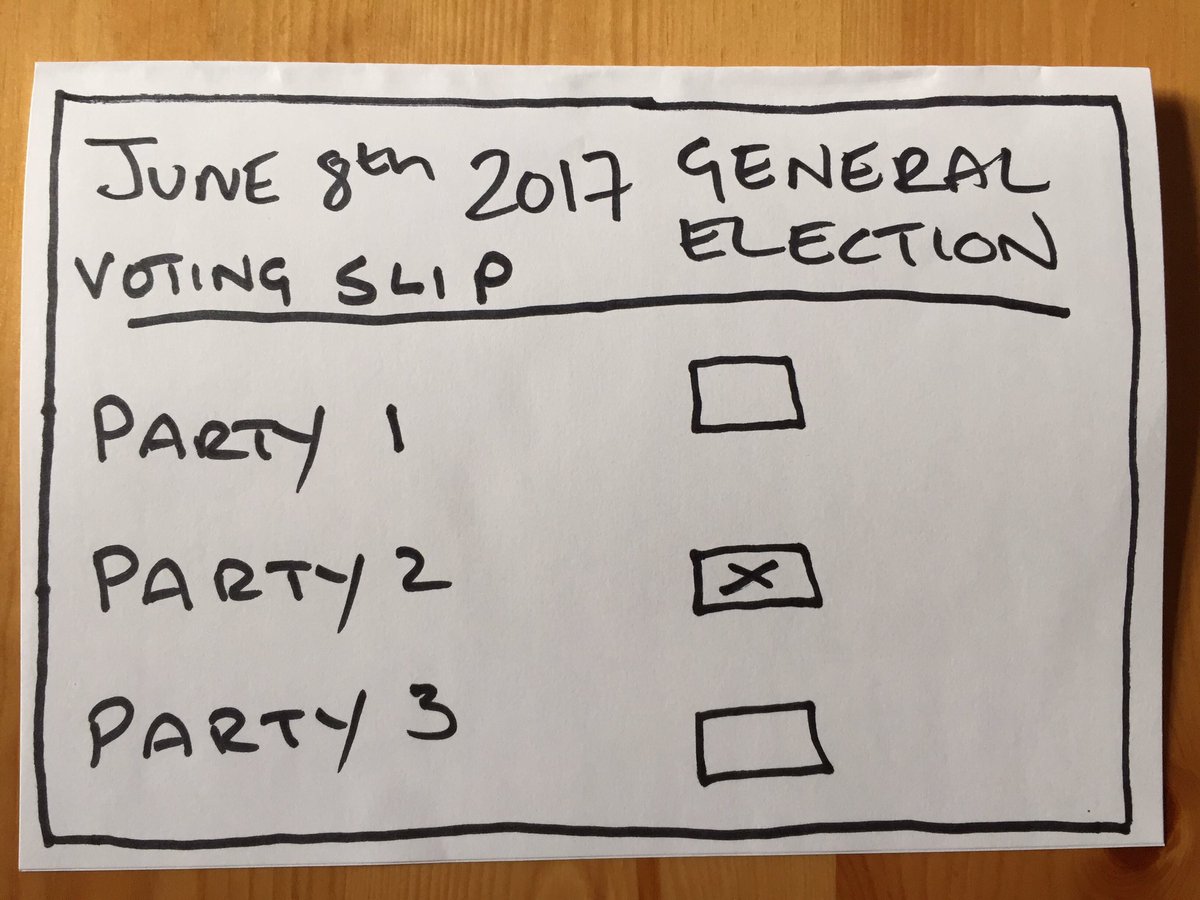 JUNE 8th 2017 GENERAL ELECTION
VOTING SLIP
PARTY 1
PARTY 2 X
PARTY 3